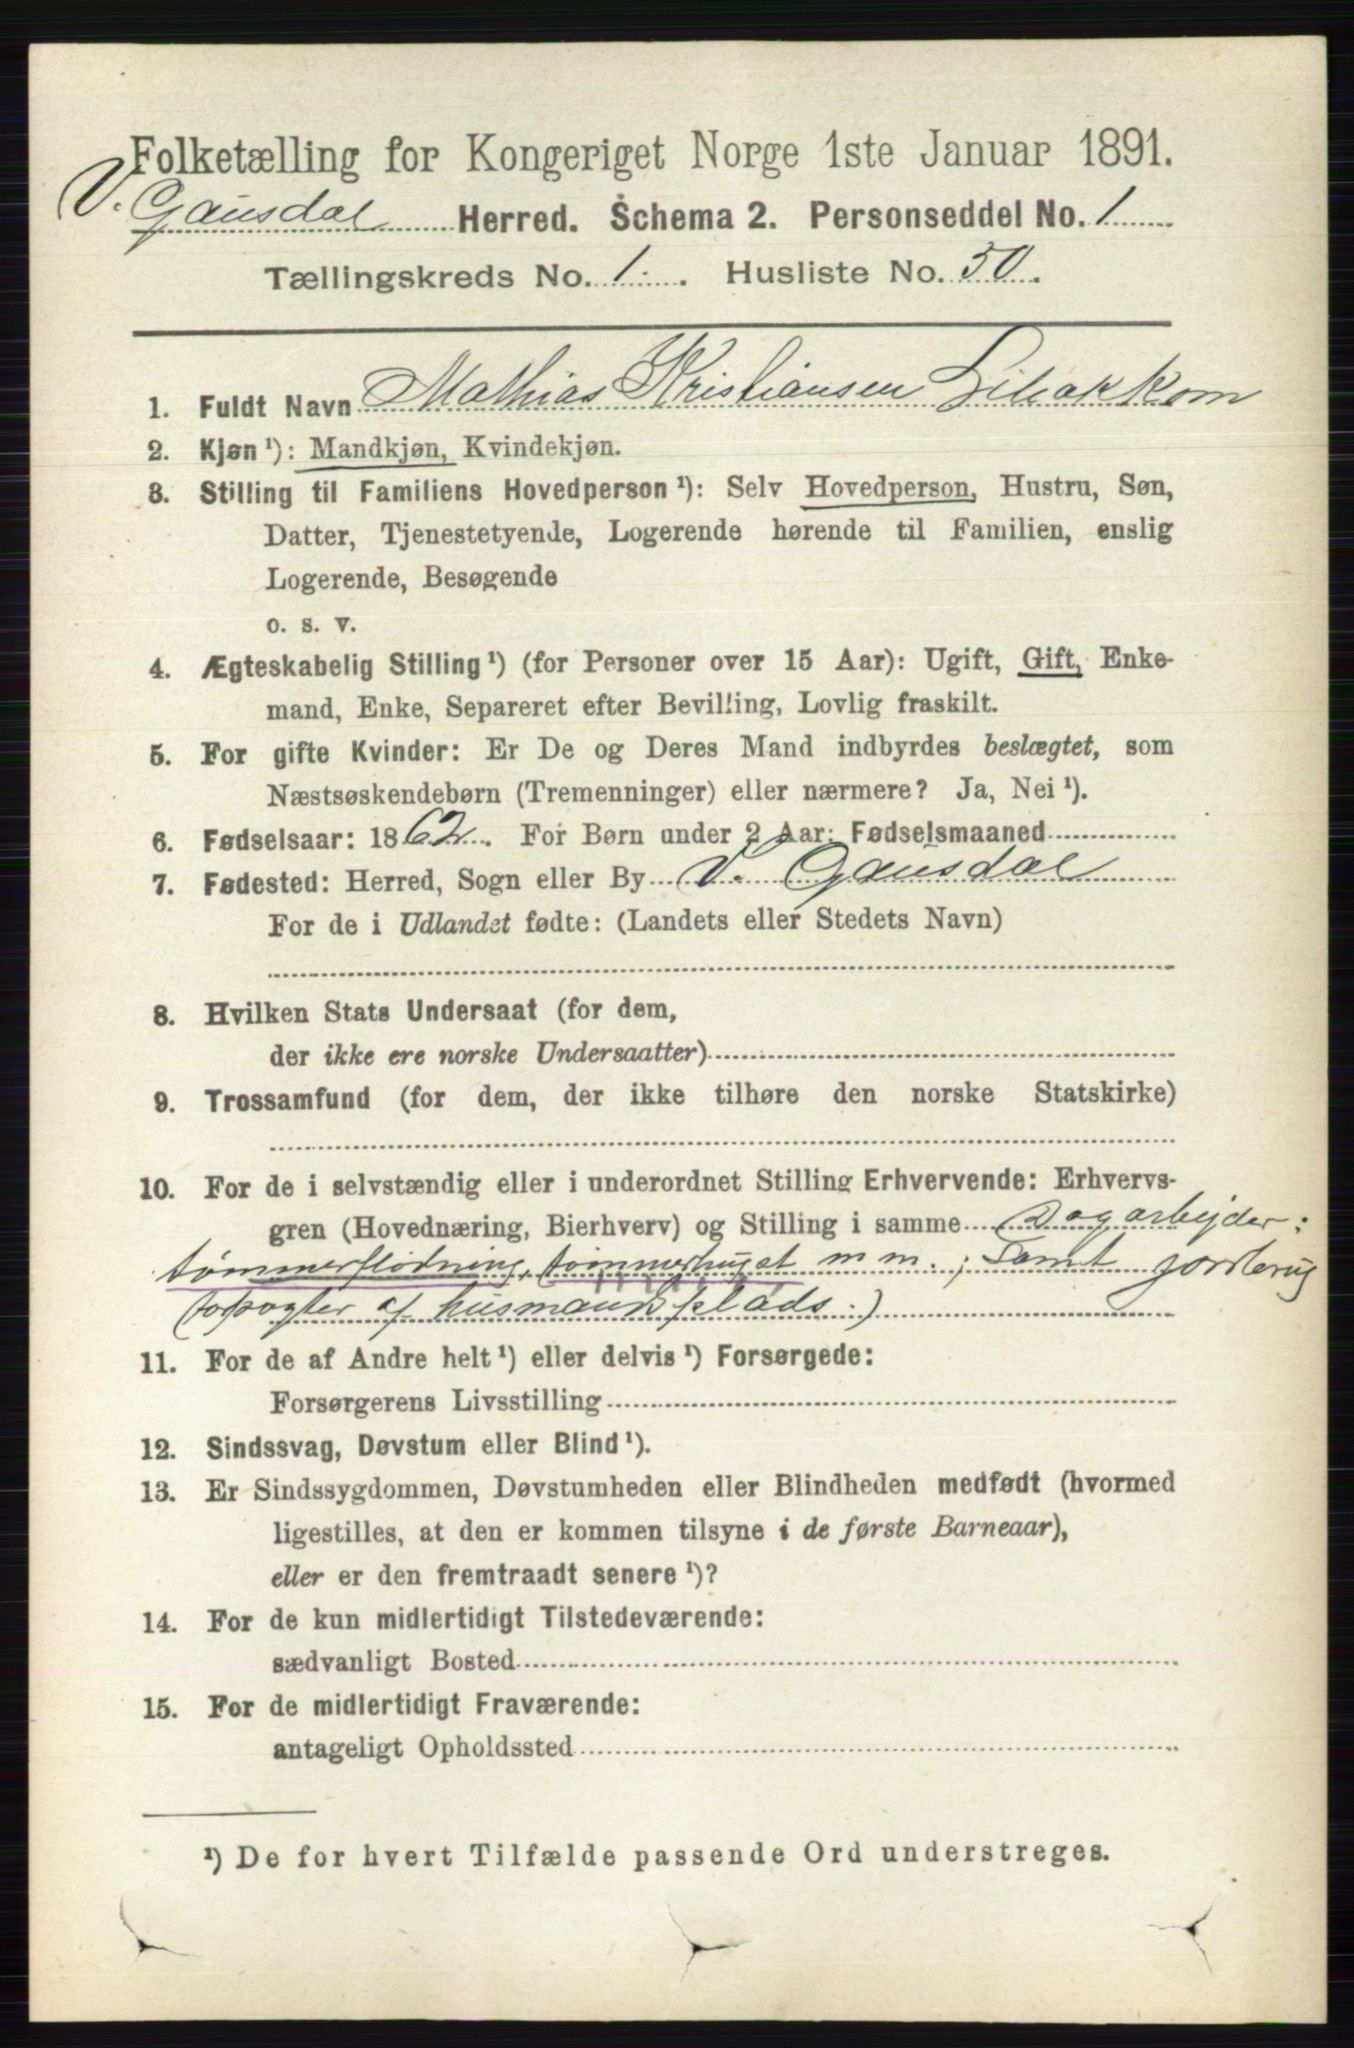 Folketælling for Kongeriget Norge 1ste Januar 1891.
V. Gausdal Herred. Schema 2. Personseddel No. 1
Tællingskreds No. 1. Husliste No. 50.
1. Fuldt Navn Mathias Kristiansen
2. Kjøn ¹): Mandkjøn, Kvindekjøn.
3. Stilling til Familiens Hovedperson ¹): Selv Hovedperson, Hustru, Søn,
Datter, Tjenestetyende, Logerende hørende til Familien, enslig
Logerende, Besøgende
o. s. v.
4. Ægteskabelig Stilling ¹) (for Personer over 15 Aar): Ugift, Gift, Enke-
mand, Enke, Separeret efter Bevilling, Lovlig fraskilt.
5. For gifte Kvinder: Er De og Deres Mand indbyrdes beslægtet, som
Næstsøskendebørn (Tremenninger) eller nærmere? Ja, Nei ¹).
6. Fødselsaar: 1862. For Børn under 2 Aar: Fødselsmaaned
7. Fødested: Herred, Sogn eller By V. Gausdal
For de i Udlandet fødte: (Landets eller Stedets Navn)
8. Hvilken Stats Undersaat (for dem,
der ikke ere norske Undersaatter)
9. Trossamfund (for dem, der ikke tilhøre den norske Statskirke)
10. For de i selvstændig eller i underordnet Stilling Erhvervende: Erhvervs-
gren (Hovednæring, Bierhverv) og Stilling i samme Dagarbejder:
tømmerflødning, tømmerhugst m m.; samt jordbrug
(forpagter af husmandsplads:)
11. For de af Andre helt ¹) eller delvis ¹) Forsørgede:
Forsørgerens Livsstilling
12. Sindssvag, Døvstum eller Blind ¹).
13. Er Sindssygdommen, Døvstumheden eller Blindheden medfødt (hvormed
ligestilles, at den er kommen tilsyne i de første Barneaar),
eller er den fremtraadt senere ¹)?
14. For de kun midlertidigt Tilstedeværende:
sædvanligt Bosted
15. For de midlertidigt Fraværende:
antageligt Opholdssted
¹) De for hvert Tilfælde passende Ord understreges.